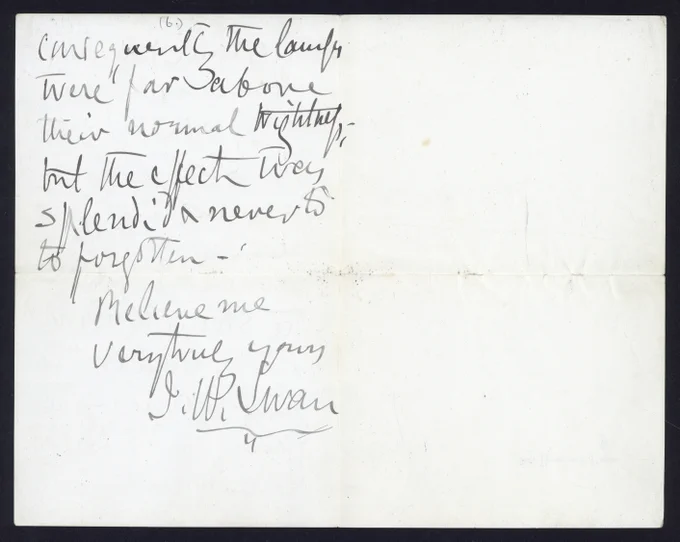 (6.)
consequently the lamps
were far above
their normal brightness,
but the effect was
splendid & never to
to forgotten -
Believe me
very truly yours
J. W. Swan